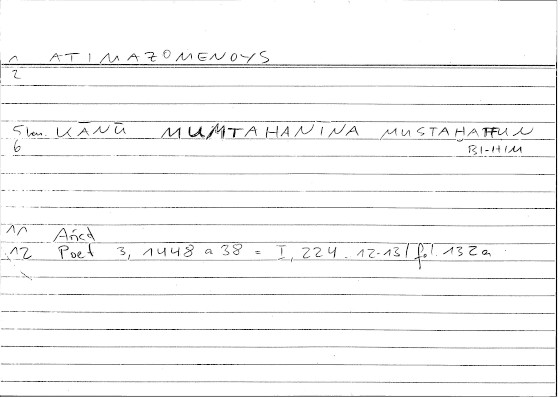 1 ATIMAZOMENOYS
2
5 KĀNŪ MUMTAHANINA MUSTAHAFFUN
6 BI-HIM
11
12 Poet 3, 1448 a 38 = I, 224. 12-13 / fol. 132a